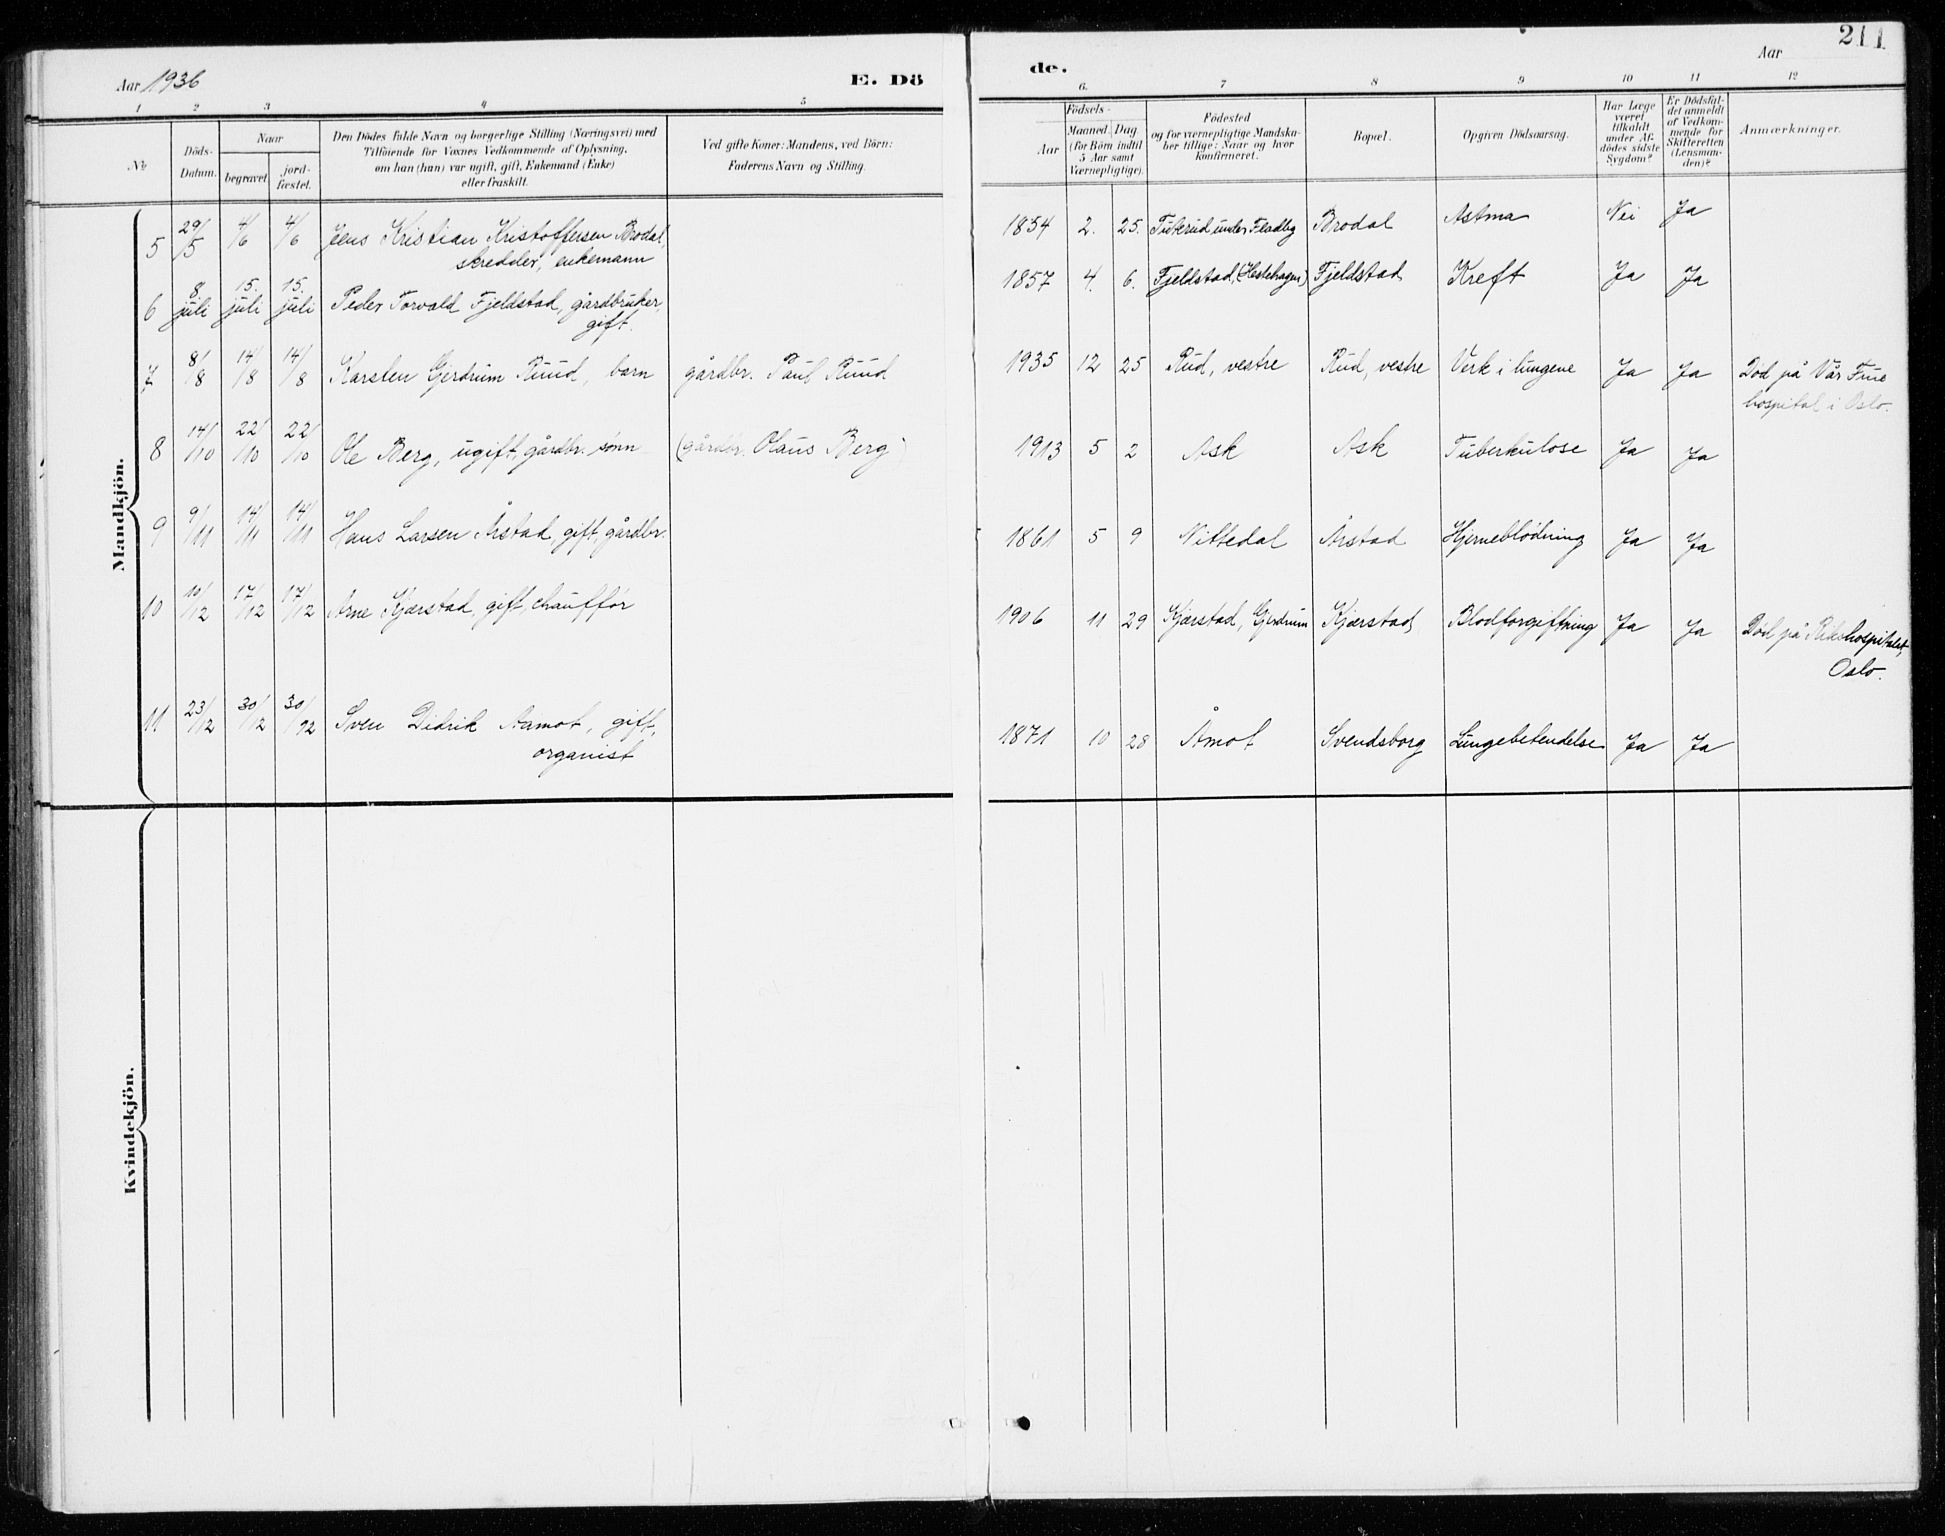 211
Aar 1936 E. Dö de. Aar
1 2 3 4 5 6. 7 8 9 10 11 12
No
Döds-Datum.
Naar
begravet
jord-fæstet.
Den Dödes fulde Navn og borgerlige Stilling (Næringsvei) med
Tilföiende for Voxnes Vedkommende af Oplysning,
om han (hun) var ugift, gift, Enkemand (Enke)
eller fraskilt.
Ved gifte Koner: Mandens, ved Börn:
Faderens Navn og Stilling.
Födsels-
Aar
Maaned. Dag
(for Börn indtil
5 Aar samt
Værnepligtige).
Födested
og for værnepligtige Mandska-
ber tillige: Naar og hvor
konfirmeret.
Bopæl.
Opgiven Dödsaarsag.
Har Læge
været
tilkaldt
under Af-
dödes sidste
Sygdom?
Er Dödsfal-
det anmeldt
af Vedkom-
mende for
Skifteretten
(Lensman-
den)?
Anmærkninger.
Mandkjön.
5 29/5 4/6 4/6 Jens Kristian Kristoffersen Brodal, 1854 2. 25. under Brodal Astma Nei Ja
skredder, enkemann
6 8 juli 15. juli 15. juli Peder Torvald Fjeldstad, gårdbruker, 1857 4. 6. Fjeldstad, (Hestehagen) Fjeldstad Kreft Ja Ja
gift.
7 8/8 14/8 14/8 Karsten Gjerdrum Ruud, barn gårdbr. Paul Ruud 1935 12 25 Rud, vestre Rud, vestre Verk i lungene Ja Ja Död på Vår Frue
hospital i Oslo.
8 14/10 22/10 22/10 Ole Berg, ugift, gårdbr. sønn (gårdbr. Olaus Berg) 1913 5 2 Ask Ask Tuberkulose Ja Ja
9 9/11 14/11 14/11 Hans Larsen Årstad, gift, gårdbr. 1861 5 9 Nittedal Årstad Hjerneblödning Ja Ja
10 10/12 17/12 17/12 Arne Kjærstad, gift, chauffør 1906 11 29 Kjærstad, Gjerdrum Kjærstad Blodforgiftning Ja Ja Död på Rikshospitalet,
Oslo.
11 23/12 30/12 30/12 Sven Didrik Aamot, gift, 1871 10 28 Åmot Svendsborg Lungebetendelse Ja Ja
organist
Kvindekjön.